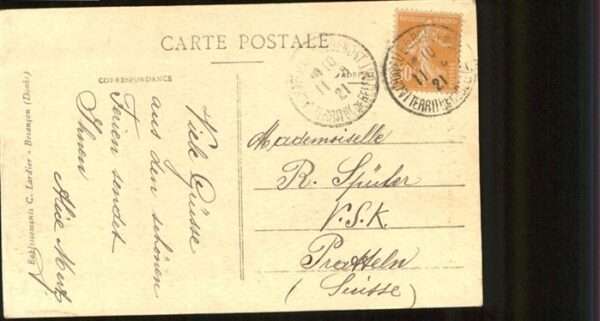 CARTE POSTALE
CORRESPONDANCE
ADRESSE
Viele Grüsse
aus den schönen
Ferien sendet
Ihnen
Alice Merz
Mademoiselle
R. Spüler
V.S.K.
Pratteln
(Suisse)
Etablissements C. Lardier - Besançon (Doubs)
11
21
11
21